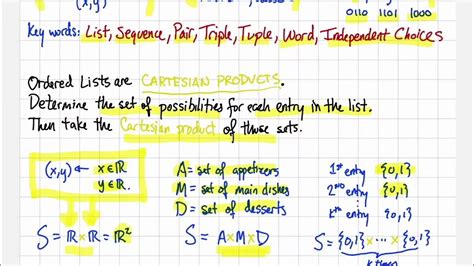 (x,y)
0110 1101 1000
Key words: List, Sequence, Pair, Triple, Tuple, Word, Independent Choices
Ordered Lists are CARTESIAN PRODUCTS.
Determine the set of possibilities for each entry in the list.
Then take the Cartesian product of those sets.
(x,y) ← x∈ℝ
y∈ℝ.
S = ℝ×ℝ = ℝ²
A = set of appetizers
M = set of main dishes
D = set of desserts
S = A×M×D
1st entry {0,1}
2nd entry {0,1}
⋮
kth entry {0,1}
S = {0,1}×⋯×{0,1}
k times